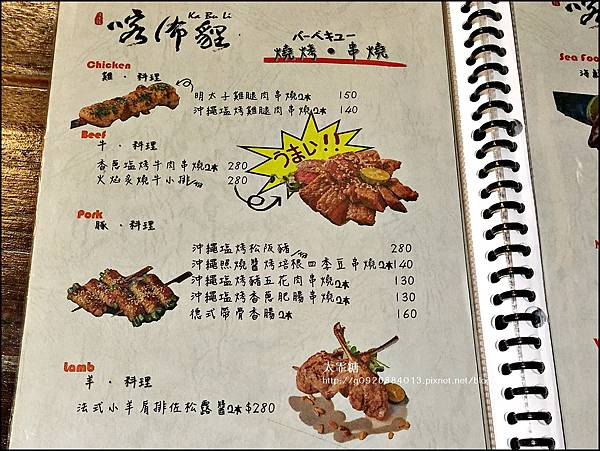 Ka Bu Li
喀佈貍
バーベキュー
燒烤・串燒
Chicken
雞・料理
明太子雞腿肉串燒2本 150
沖繩塩烤雞腿肉串燒2本 140
Beef
牛・料理
香蔥塩烤牛肉串燒2本 280
火焰炙燒牛小排 280
うまい!!
Pork
豚・料理
沖繩塩烤松阪豬 280
沖繩照燒醬烤培根四季豆串燒2本 140
沖繩塩烤豬五花肉串燒2本 130
沖繩塩烤香蔥肥腸串燒2本 130
德式帶骨香腸2本 160
Lamb
羊・料理
法式小羊肩排佐松露醬2本 $280
太崇糖
Sea Foo
海